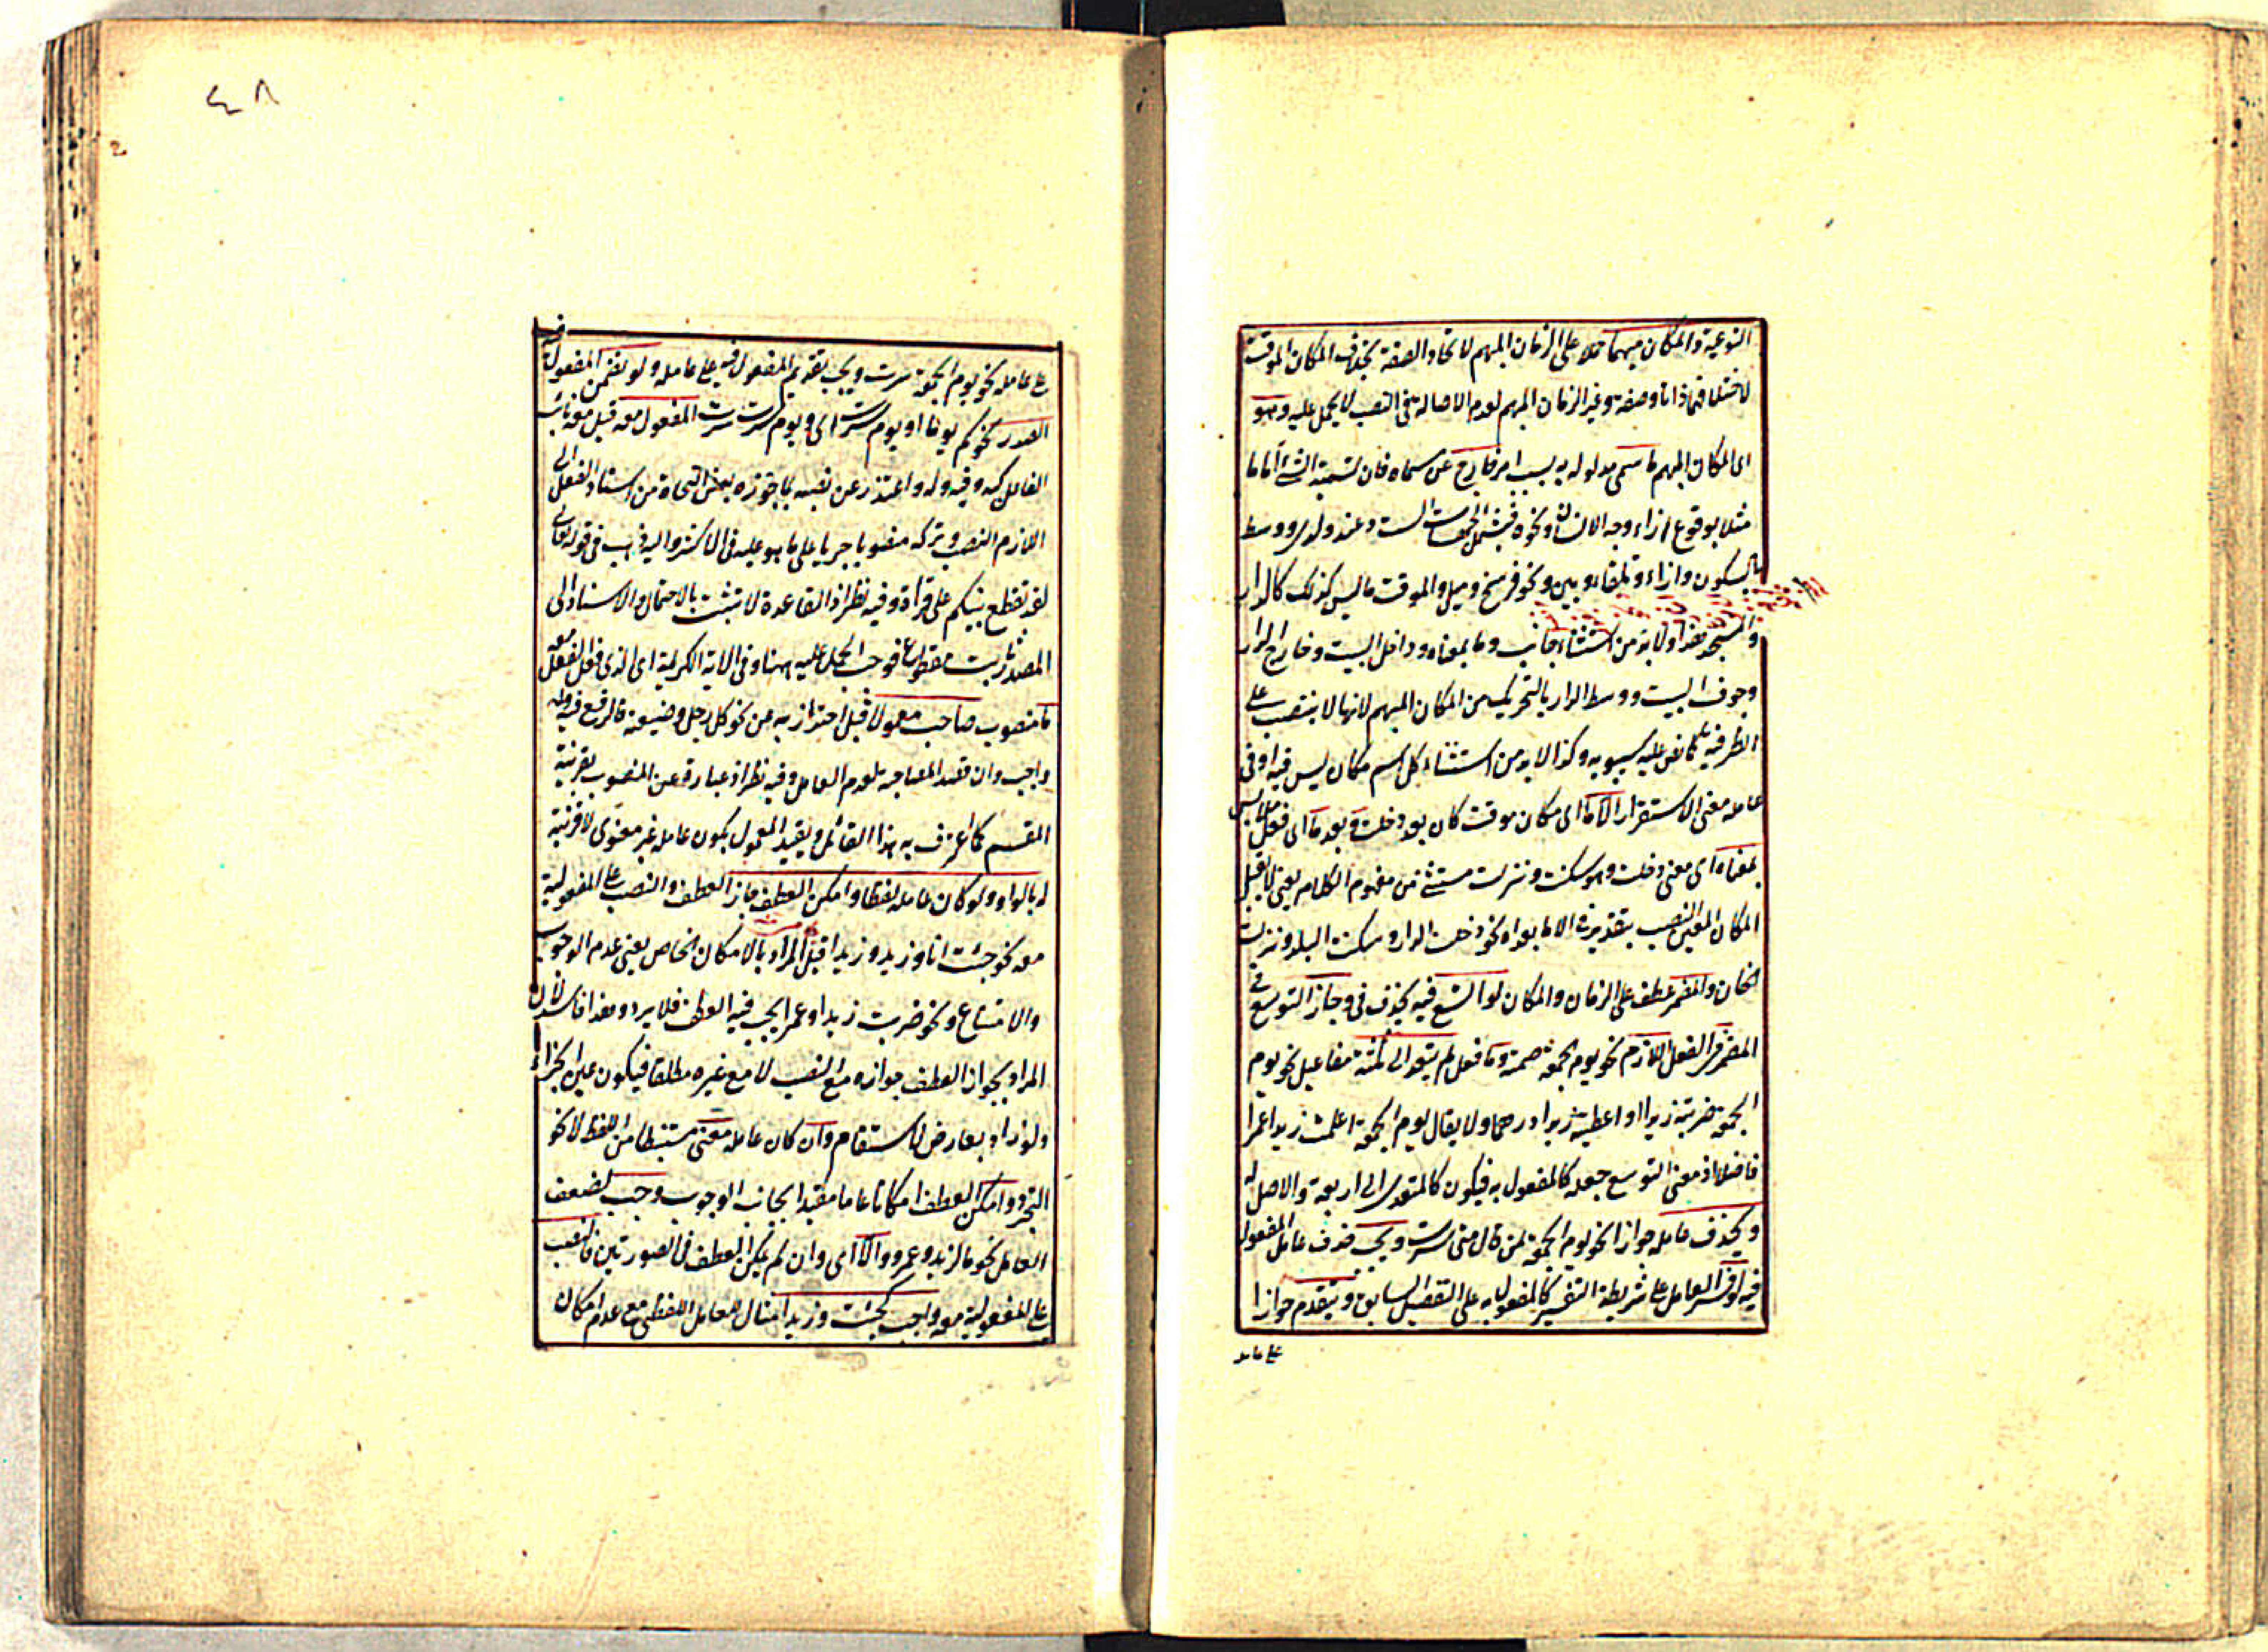 النوعية والمكان مبهما حملا على الزمان المبهم لاتحاد الصفة بخلاف المكان الموقت
لاختلافهما ذاتا وصفة وغير الزمان المبهم لعدم الاصالة في النصب لا يحمل عليه وهو
اى المكان المبهم ما سمى مدلوله به بسبب امر خارج عن مسماه فان تسمية الشئ اماما
مثلا بوقوع ازاء وجه الانسان ونحوه فيشمل الجهات الست وعند ولدى ووسط
بالسكون وازاء وتلقاء وبين ونحو فرسخ وميل والموقت ما ليس كذلك كالدار
والمسجد هذا ولا بد من استثناء جانب وما بمعناه وداخل البيت وخارج الدار
وجوف البيت ووسط الدار بالتحريك من المكان المبهم لانها لا ينتصب على
الظرفية كما نص عليه سيبويه وكذا لا بد من استثناء كل اسم مكان ليس فيه او فى
عامله معنى الاستقرار الا ما اى مكان موقت كان بعد دخلت وبعد ما اى فعل ملابس
بمعناه اى معنى دخلت وهو سكنت ونزلت مستثنى من مفهوم الكلام يعنى لا يقبل
المكان المعين النصب بتقدير فى الا ما بعداه نحو دخلت الدار وسكنت البلد ونزلت
الخان والمضمر عطف على الزمان والمكان لو اتسع فيه بحذف فى وجاز التوسع فى
المضمر فى الفعل اللازم نحو يوم الجمعة صمته وما فعل لم يتعد الى ثلثة مفاعيل نحو يوم
الجمعة ضربته زيدا او اعطيته زيدا درهما ولا يقال يوم الجمعة اعلمته زيدا عمرا
فاضلا اذ معنى التوسع جعله كالمفعول به فيكون كالمتعدى الى اربعة والاصل له
ويحذف عامله جوازا نحو يوم الجمعة لمن قال متى سرت ويجب حذف عامل المفعول
فيه لو فسر العامل على شريطة التفسير كالمفعول به على التفصيل السابق ويتقدم جوازا
على عامله
٤٨
على عامله نحو يوم الجمعة سرت ويجب تقديم المفعول فيه على عامله ولو تضمن المفعول فيه
الصدر نحو كم يوما او يوم سرت اى ويوم سرت سرت المفعول معه قيل معه نائب
الفاعل كه وفيه وله واعتذر عن نصبه بما جوزه بعض النحاة من اسناد الفعل الى
اللازم النصب وتركه منصوبا جريا على ما هو عليه فى الاكثر واليه ذهب فى قوله تعالى
لقد تقطع بينكم على قراءة وفيه نظر اذ القاعدة لا تثبت بالاحتمال والاسناد الى
المصدر ثابت مقطوعا فوجب الحمل عليه ههنا وفى الاية الكريمة اى الذى فعل الفعل معه
ما منصوب صاحب معمولا قيل احتراز به من نحو كل رجل وضيعته فالرفع فيه
واجب وان قصد المصاحبة لعدم العامل وفيه نظر اذ ما عبارة عن المنصوب بقرينة
المقسم كما اعترف به هذا القائل ويقيد المعمول بكون عامله غير معنوى لا قرينة
له بالواو ولو كان عامله لفظا وامكن العطف جاز العطف والنصب على المفعولية
معه نحو جئت انا وزيد وزيدا قيل المراد بالامكان الخاص يعنى عدم الوجوب
والامتناع ونحو ضربت زيدا وعمرا يجب فيه العطف فلا يرد وهذا فاسد لان
المراد بجواز العطف جوازه مع النصب لا مع غيره مطلقا فيكون عين الجزاء
ولو زاد بعارض لاستقام وان كان عامله معنى مستنبطا من اللفظ لا نحو
التجرد وامكن العطف امكانا عاما مقيدا بجانب الوجوب وجب لضعف
العامل نحو ما لزيد وعمرو والا اى وان لم يمكن العطف فى الصورتين فالنصب
على المفعولية معه واجب كجئت وزيدا مثال للعامل اللفظى مع عدم امكان